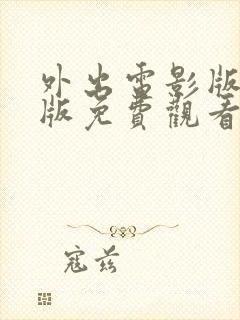 外出電影版
版免費觀看
寇兹